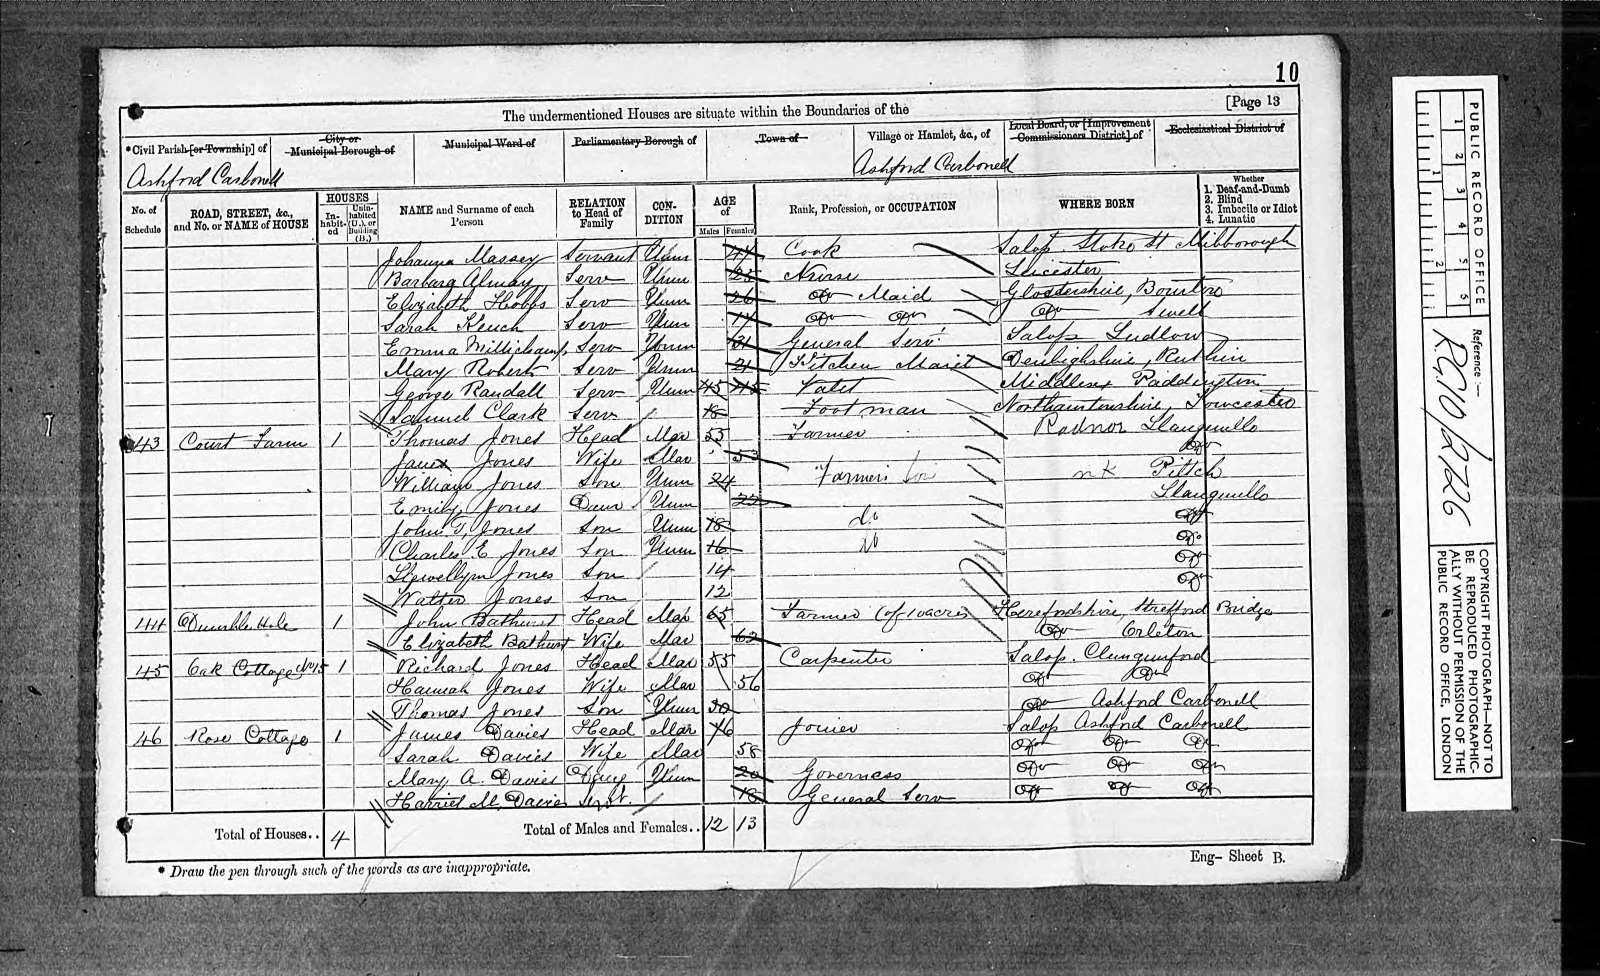 10
The undermentioned Houses are situate within the Boundaries of the [Page 13
*Civil Parish [or Township] of City or Municipal Borough of Municipal Ward of Parliamentary Borough of Town of Village or Hamlet, &c., of Local Board, or [Improvement Commissioners District] of Ecclesiastical District of
Ashford Carbonell Ashford Carbonell
No. of Schedule ROAD, STREET, &c., and No. or NAME of HOUSE HOUSES In-habit-ed Unin-habited (U.), or Building (B.) NAME and Surname of each Person RELATION to Head of Family CON-DITION AGE of Males Females Rank, Profession, or OCCUPATION WHERE BORN Whether 1. Deaf-and-Dumb 2. Blind 3. Imbecile or Idiot 4. Lunatic
Johanna Massey Servant Unm Cook Salop Stoke St Milborough
Barbara Almay Serv Unm 25 Nurse Leicester
Elizabeth Hobbs Serv Unm 26 Do Maid Glostershire, Bourton
Sarah Keuch Serv Unm 17 Do Do Do
Emma Millichamp Serv Unm 31 General Serv Salop Ludlow
Mary Roberts Serv Unm 21 Kitchen Maid Denbighshire, Ruthin
George Randall Serv Unm 45 45 Valet Middlesex Paddington
Samuel Clark Serv 18 Footman Northamtonshire, Towcester
43 Court Farm 1 Thomas Jones Head Mar 55 Farmer Radnor Llangunllo
Jones Wife Mar 53 Do
William Jones Son Unm 24 Farmers Son n K Pilleth
Emily Jones Daur Unm 22 Llangunllo
John T. Jones Son Unm 18 do Do
Charles E Jones Son Unm 16 do Do
Llewellyn Jones Son 14 Do
Walter Jones Son 12 Do
44 Dumble Hole 1 John Bathurst Head Mar 65 Farmer (of 10 acres Herefordshire, Bridge
Elizabeth Bathurst Wife Mar 62 Do Orleton
45 Oak Cottage 1 Richard Jones Head Mar 55 Carpenter Salop. Clungunford
Hannah Jones Wife Mar 56 Do Do
Thomas Jones Son Unm 30 Do Ashford Carbonell
46 Rose Cottage 1 James Davies Head Mar 76 Joiner Salop Ashford Carbonell
Sarah Davies Wife Mar 58 Do Do Do
Mary A. Davies Daug Unm 20 Governess Do Do Do
Harriet M. Davies Servt. 18 General Serv Do Do Do
Total of Houses.. 4 Total of Males and Females.. 12 13
* Draw the pen through such of the words as are inappropriate.
Eng- Sheet B.
PUBLIC RECORD OFFICE
1 2 3 4 5 6
1 2
Reference:-
R.G. 10/2726
COPYRIGHT PHOTOGRAPH—NOT TO BE REPRODUCED PHOTOGRAPHICALLY WITHOUT PERMISSION OF THE PUBLIC RECORD OFFICE, LONDON